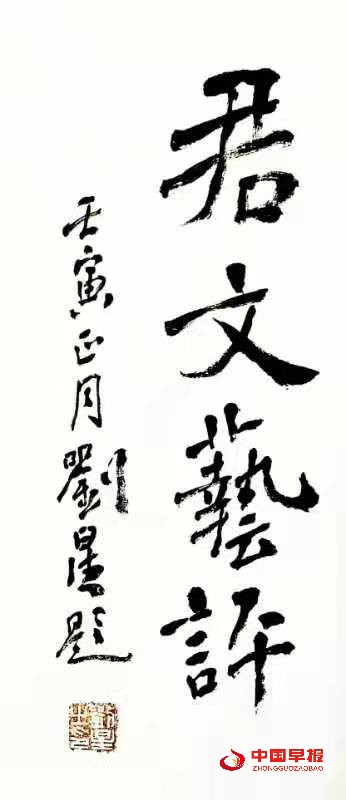 君文藝評
壬寅正月劉星題
中国早报
ZHONGGUOZAOBAO